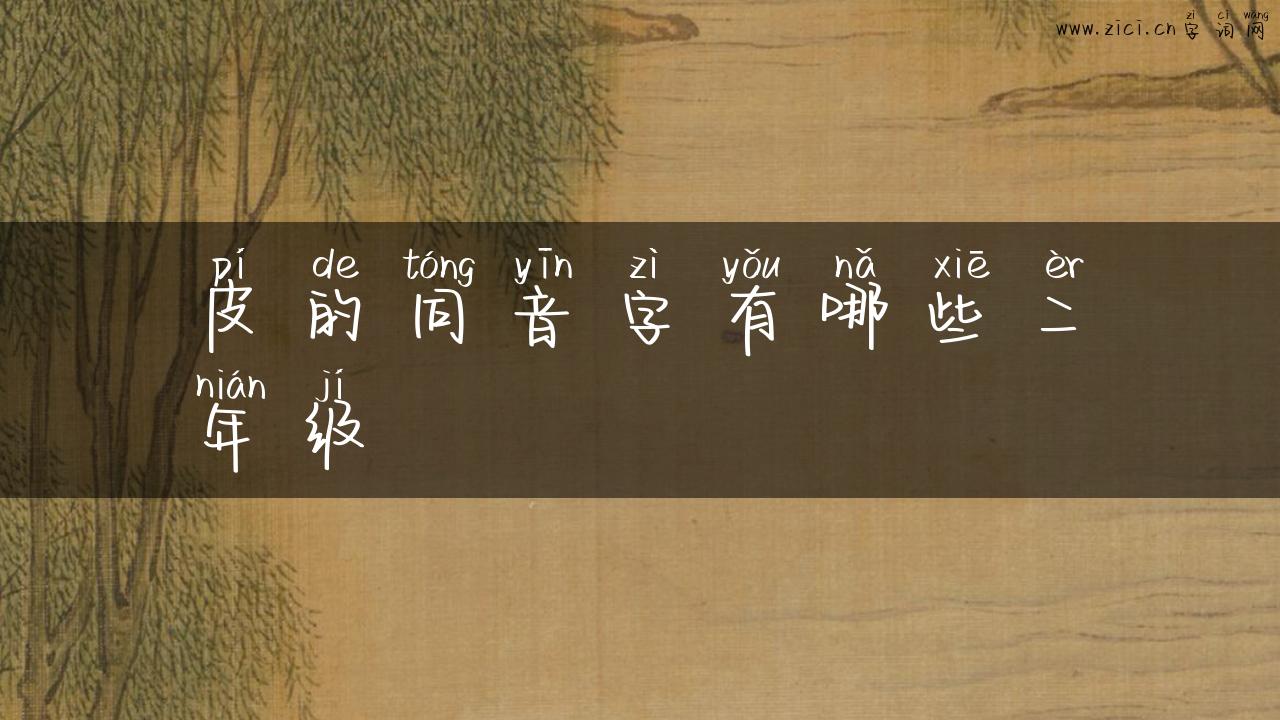 zì cí wǎng
www.zici.cn 字词网
pí de tóng yīn zì yǒu nǎ xiē èr
皮的同音字有哪些二
nián jí
年级